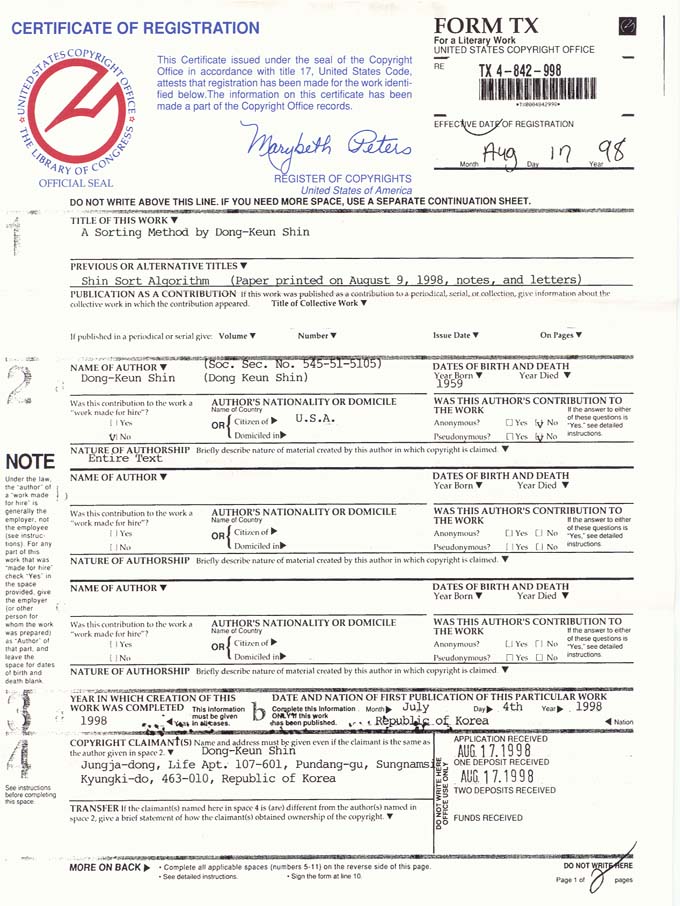 CERTIFICATE OF REGISTRATION
FORM TX
For a Literary Work
UNITED STATES COPYRIGHT OFFICE
UNITED STATES COPYRIGHT OFFICE
THE LIBRARY OF CONGRESS
OFFICIAL SEAL
This Certificate issued under the seal of the Copyright
Office in accordance with title 17, United States Code,
attests that registration has been made for the work identi-
fied below.The information on this certificate has been
made a part of the Copyright Office records.
Marybeth Peters
REGISTER OF COPYRIGHTS
United States of America
RE
TX 4-842-998
*TX0004842998*
EFFECTIVE DATE OF REGISTRATION
Aug 17 98
Month Day Year
DO NOT WRITE ABOVE THIS LINE. IF YOU NEED MORE SPACE, USE A SEPARATE CONTINUATION SHEET.
1
TITLE OF THIS WORK ▼
A Sorting Method by Dong-Keun Shin
PREVIOUS OR ALTERNATIVE TITLES ▼
Shin Sort Algorithm (Paper printed on August 9, 1998, notes, and letters)
PUBLICATION AS A CONTRIBUTION If this work was published as a contribution to a periodical, serial, or collection, give information about the
collective work in which the contribution appeared. Title of Collective Work ▼
If published in a periodical or serial give: Volume ▼ Number ▼ Issue Date ▼ On Pages ▼
2
NAME OF AUTHOR ▼ (Soc. Sec. No. 545-51-5105)
Dong-Keun Shin (Dong Keun Shin)
DATES OF BIRTH AND DEATH
Year Born ▼ Year Died ▼
1959
Was this contribution to the work a
"work made for hire"?
Yes
No
AUTHOR'S NATIONALITY OR DOMICILE
Name of Country
OR { Citizen of ▶ U.S.A.
Domiciled in▶
WAS THIS AUTHOR'S CONTRIBUTION TO
THE WORK
Anonymous? Yes No
Pseudonymous? Yes No
If the answer to either
of these questions is
"Yes," see detailed
instructions.
NATURE OF AUTHORSHIP Briefly describe nature of material created by this author in which copyright is claimed. ▼
Entire Text
NOTE
Under the law,
the "author" of
a "work made
for hire" is
generally the
employer, not
the employee
(see instruc-
tions). For any
part of this
work that was
"made for hire"
check "Yes" in
the space
provided, give
the employer
(or other
person for
whom the work
was prepared)
as "Author" of
that part, and
leave the
space for dates
of birth and
death blank.
NAME OF AUTHOR ▼
DATES OF BIRTH AND DEATH
Year Born ▼ Year Died ▼
Was this contribution to the work a
"work made for hire"?
Yes
No
AUTHOR'S NATIONALITY OR DOMICILE
Name of Country
OR { Citizen of ▶
Domiciled in▶
WAS THIS AUTHOR'S CONTRIBUTION TO
THE WORK
Anonymous? Yes No
Pseudonymous? Yes No
If the answer to either
of these questions is
"Yes," see detailed
instructions.
NATURE OF AUTHORSHIP Briefly describe nature of material created by this author in which copyright is claimed. ▼
NAME OF AUTHOR ▼
DATES OF BIRTH AND DEATH
Year Born ▼ Year Died ▼
Was this contribution to the work a
"work made for hire"?
Yes
No
AUTHOR'S NATIONALITY OR DOMICILE
Name of Country
OR { Citizen of ▶
Domiciled in▶
WAS THIS AUTHOR'S CONTRIBUTION TO
THE WORK
Anonymous? Yes No
Pseudonymous? Yes No
If the answer to either
of these questions is
"Yes," see detailed
instructions.
NATURE OF AUTHORSHIP Briefly describe nature of material created by this author in which copyright is claimed. ▼
3
YEAR IN WHICH CREATION OF THIS
WORK WAS COMPLETED This information
must be given
1998 ◀ Year in all cases.
b
DATE AND NATION OF FIRST PUBLICATION OF THIS PARTICULAR WORK
Complete this information
ONLY if this work
has been published.
Month▶ July Day▶ 4th Year▶ 1998
Republic of Korea ◀ Nation
4
See instructions
before completing
this space.
COPYRIGHT CLAIMANT(S) Name and address must be given even if the claimant is the same as
the author given in space 2. ▼ Dong-Keun Shin
Jungja-dong, Life Apt. 107-601, Pundang-gu, Sungnamsi
Kyungki-do, 463-010, Republic of Korea
TRANSFER If the claimant(s) named here in space 4 is (are) different from the author(s) named in
space 2, give a brief statement of how the claimant(s) obtained ownership of the copyright. ▼
DO NOT WRITE HERE
OFFICE USE ONLY
APPLICATION RECEIVED
AUG.17.1998
ONE DEPOSIT RECEIVED
AUG.17.1998
TWO DEPOSITS RECEIVED
FUNDS RECEIVED
MORE ON BACK ▶ • Complete all applicable spaces (numbers 5-11) on the reverse side of this page.
• See detailed instructions. • Sign the form at line 10.
DO NOT WRITE HERE
Page 1 of 2 pages